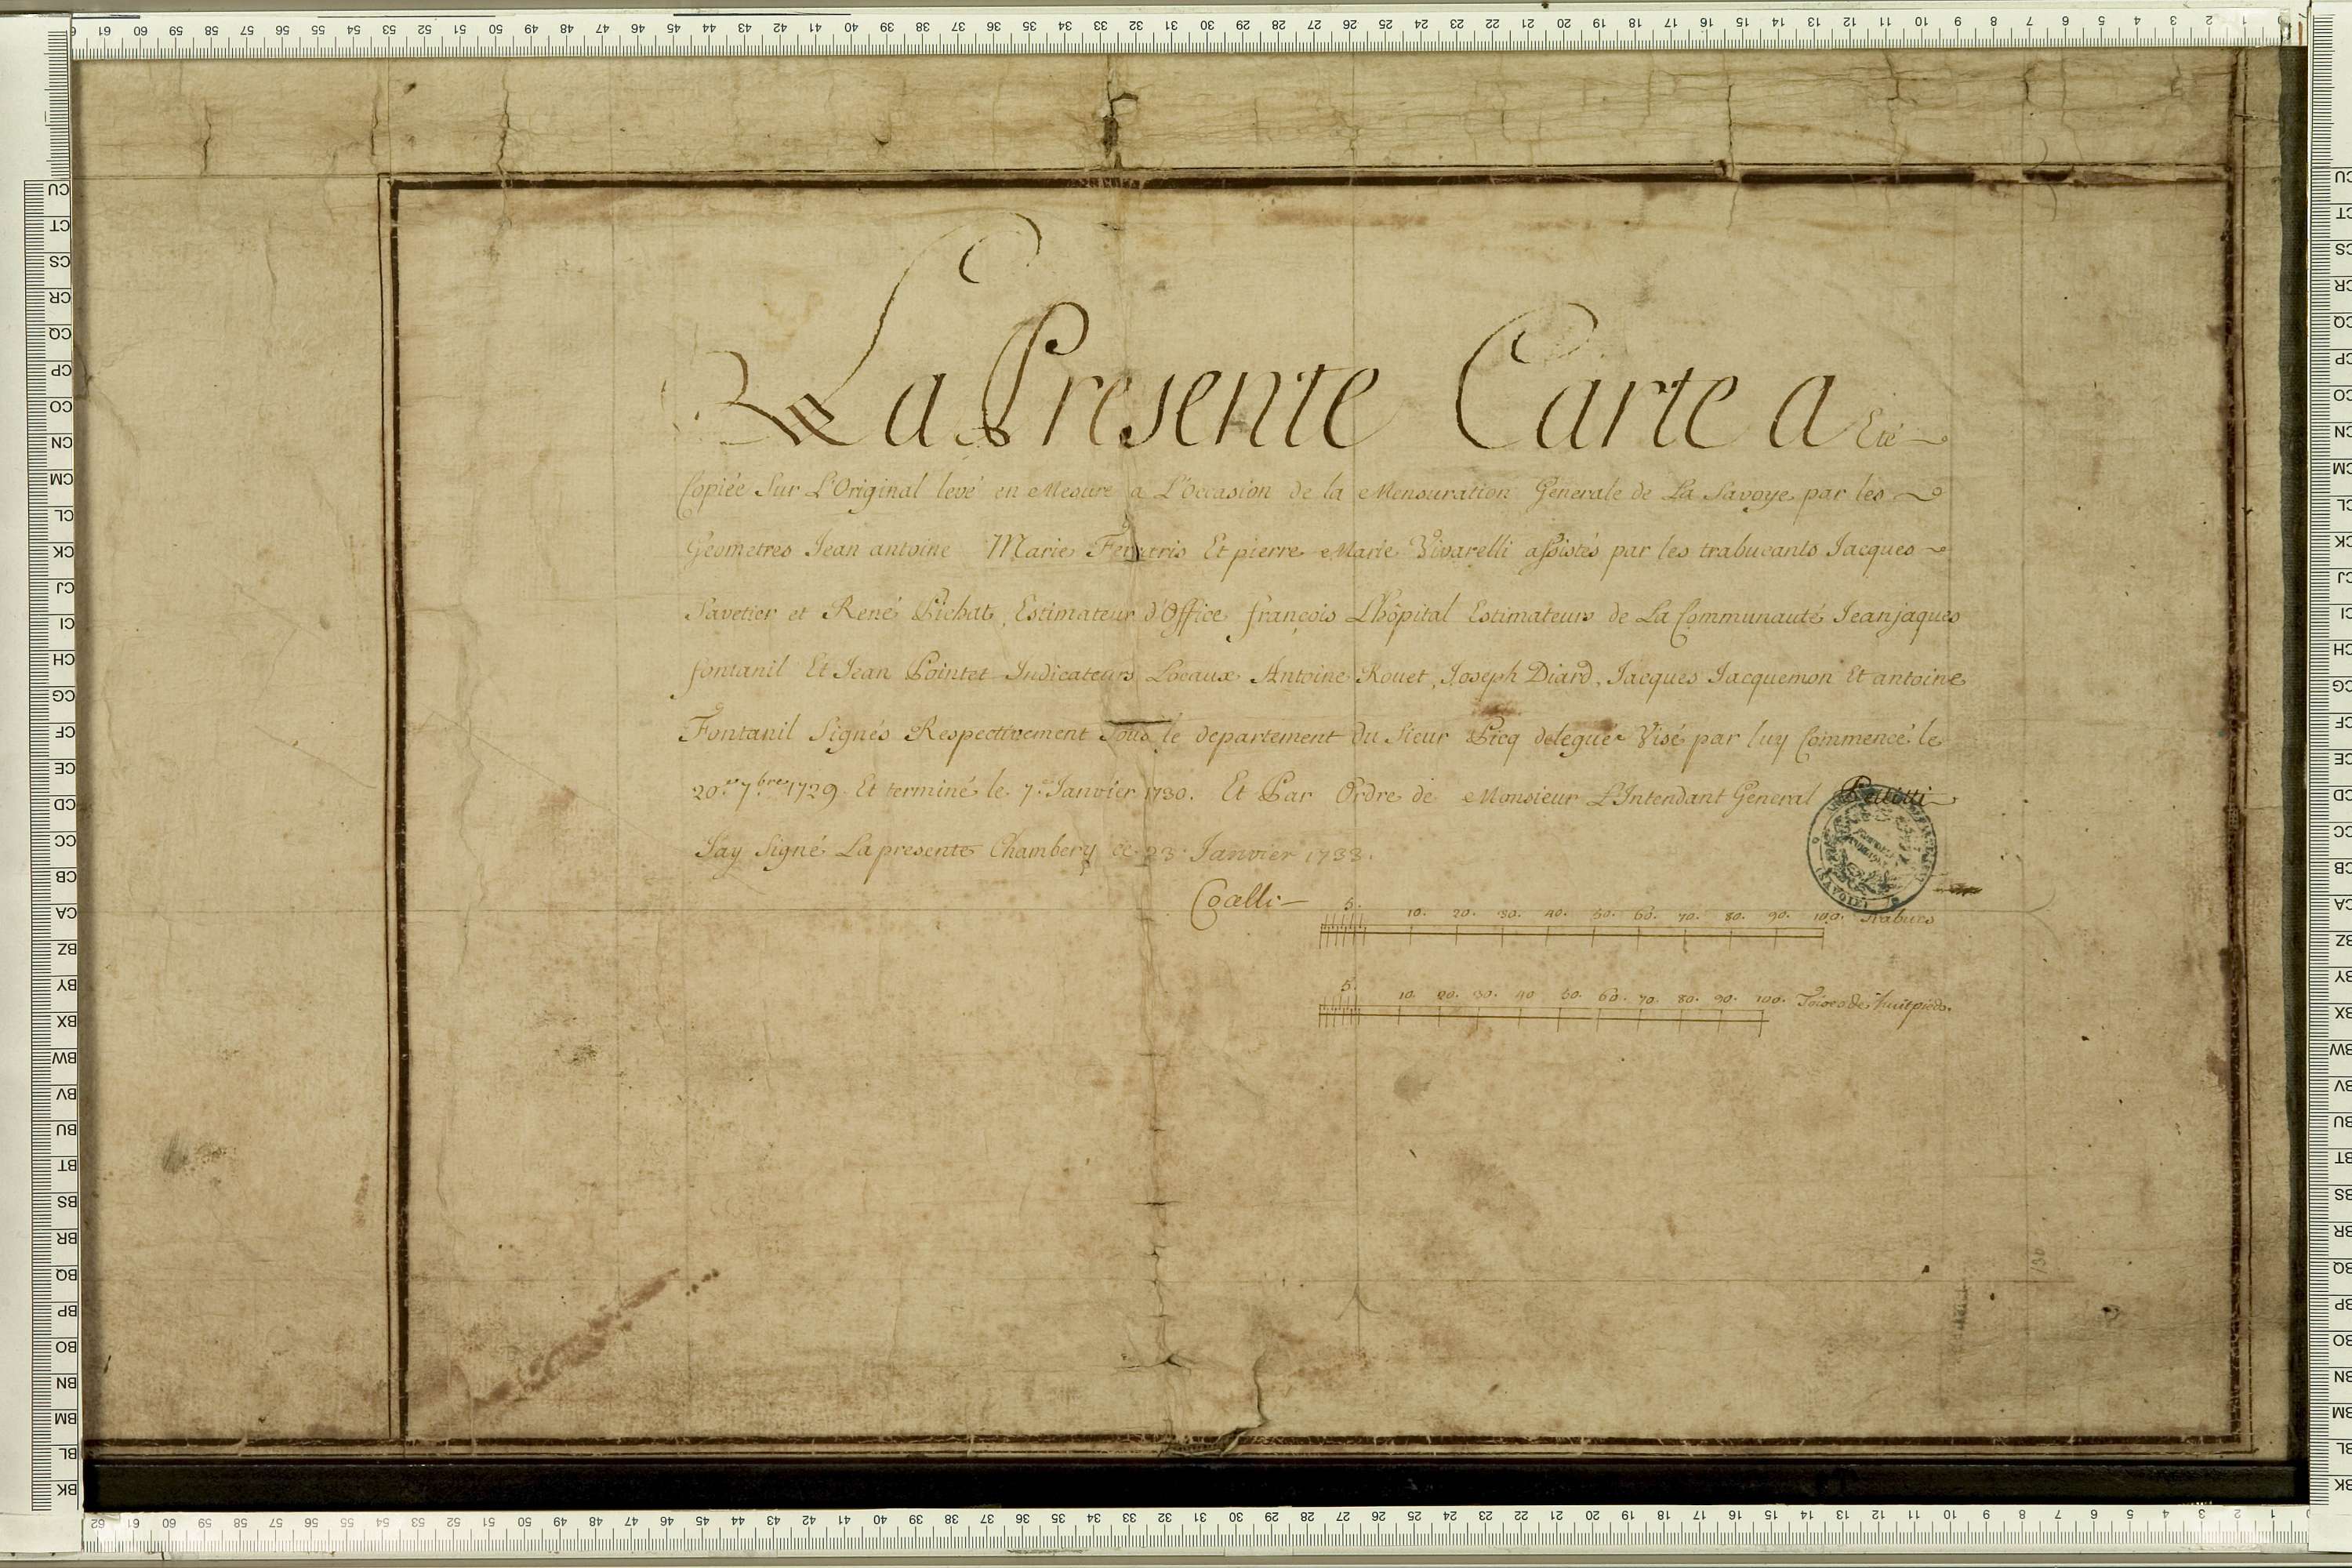 La Presente Carte a Eté
Copiée Sur L'Original levé en Mesure a L'occasion de la Mensuration Generale de La Savoye par les
Geometres Jean antoine Marie Ferraris Et pierre Marie Vivarelli assistés par les trabucants Jacques
Savetier et René Pichat, Estimateur d'Office françois L'hôpital Estimateurs de La Communauté Jeanjaques
fontanil Et Jean Pointet Indicateurs Locaux Antoine Rouet, Joseph Diard, Jacques Jacquemon Et antoine
Fontanil Signés Respectivement Sous le departement du Sieur Picq delegué Visé par luy Commencé le
20.e 7.bre 1729. Et terminé le 7.e Janvier 1730. Et Par Ordre de Monsieur L'Intendant General
Jay Signé La presente Chambery ce 23 Janvier 1733.
Cocelli
5. 10. 20. 30. 40. 50. 60. 70. 80. 90. 100. Trabucs
5. 10. 20. 30. 40 50. 60. 70. 80. 90. 100. Toises de huit pieds.
130